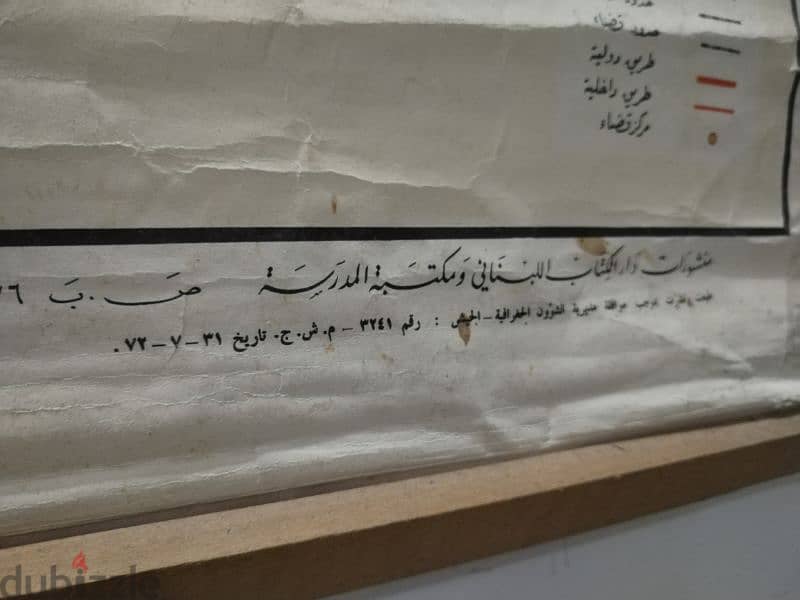 حدود
حدود قضاء
طريق دولية
طريق داخلية
مركز قضاء
منشورات دار الكتاب اللبناني ومكتبة المدرسة ص.ب ٧٦
طبعت ونشرت بموجب موافقة مديرية الشؤون الجغرافية - الجيش : رقم ٣٢٤١ - م.ش.ج. تاريخ ٣١-٧-٧٢.
dubizzle